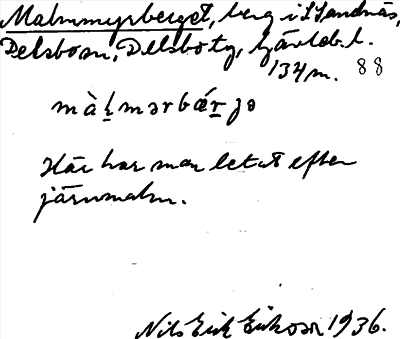 Malmmyrberget, berg i L Sandnäs,
Delsbo sn, Delsbo tg, Gävleb. l.
134 m. 88
màḻmərbǽṟjə
Här har man letat efter
järnmalm.
Nils Erik Eriksson 1936.